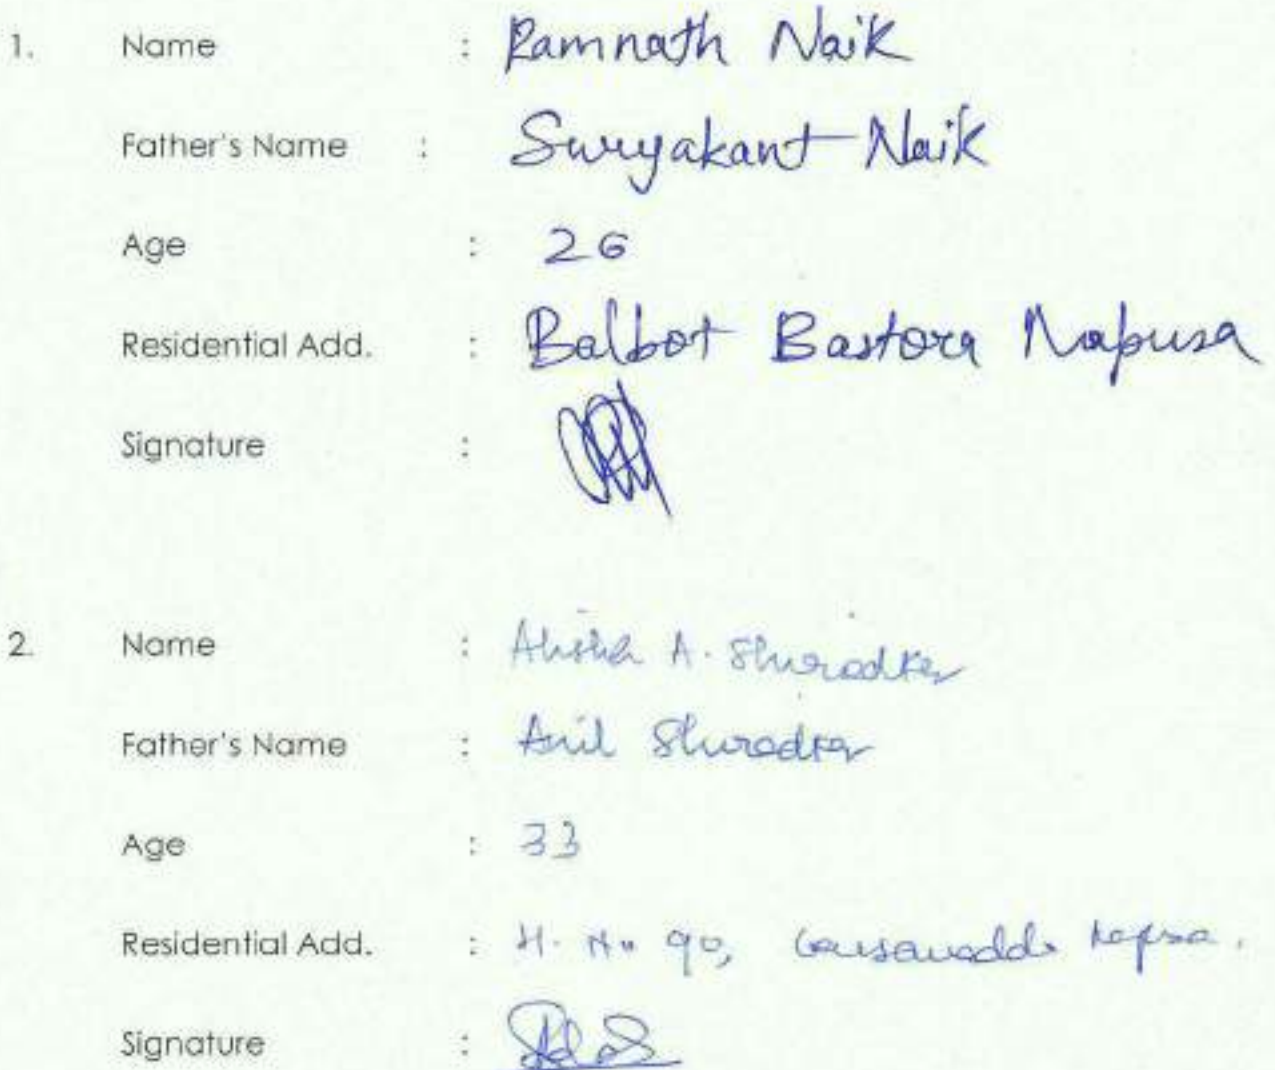 1. Name : Ramnath Naik
Father's Name : Suryakant Naik
Age : 26
Residential Add. : Balbot Bastora Mapusa
Signature :
2. Name : A. Shirodker
Father's Name : Anil Shirodker
Age : 33
Residential Add. : H. No 90,
Signature :